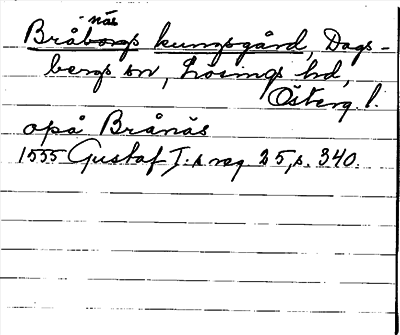 näs
Bråborgs kungsgård, Dags-
bergs sn, Lösings hd,
Österg. l.
opå Brånäs
1555 Gustaf I:s reg. 25, s. 340.